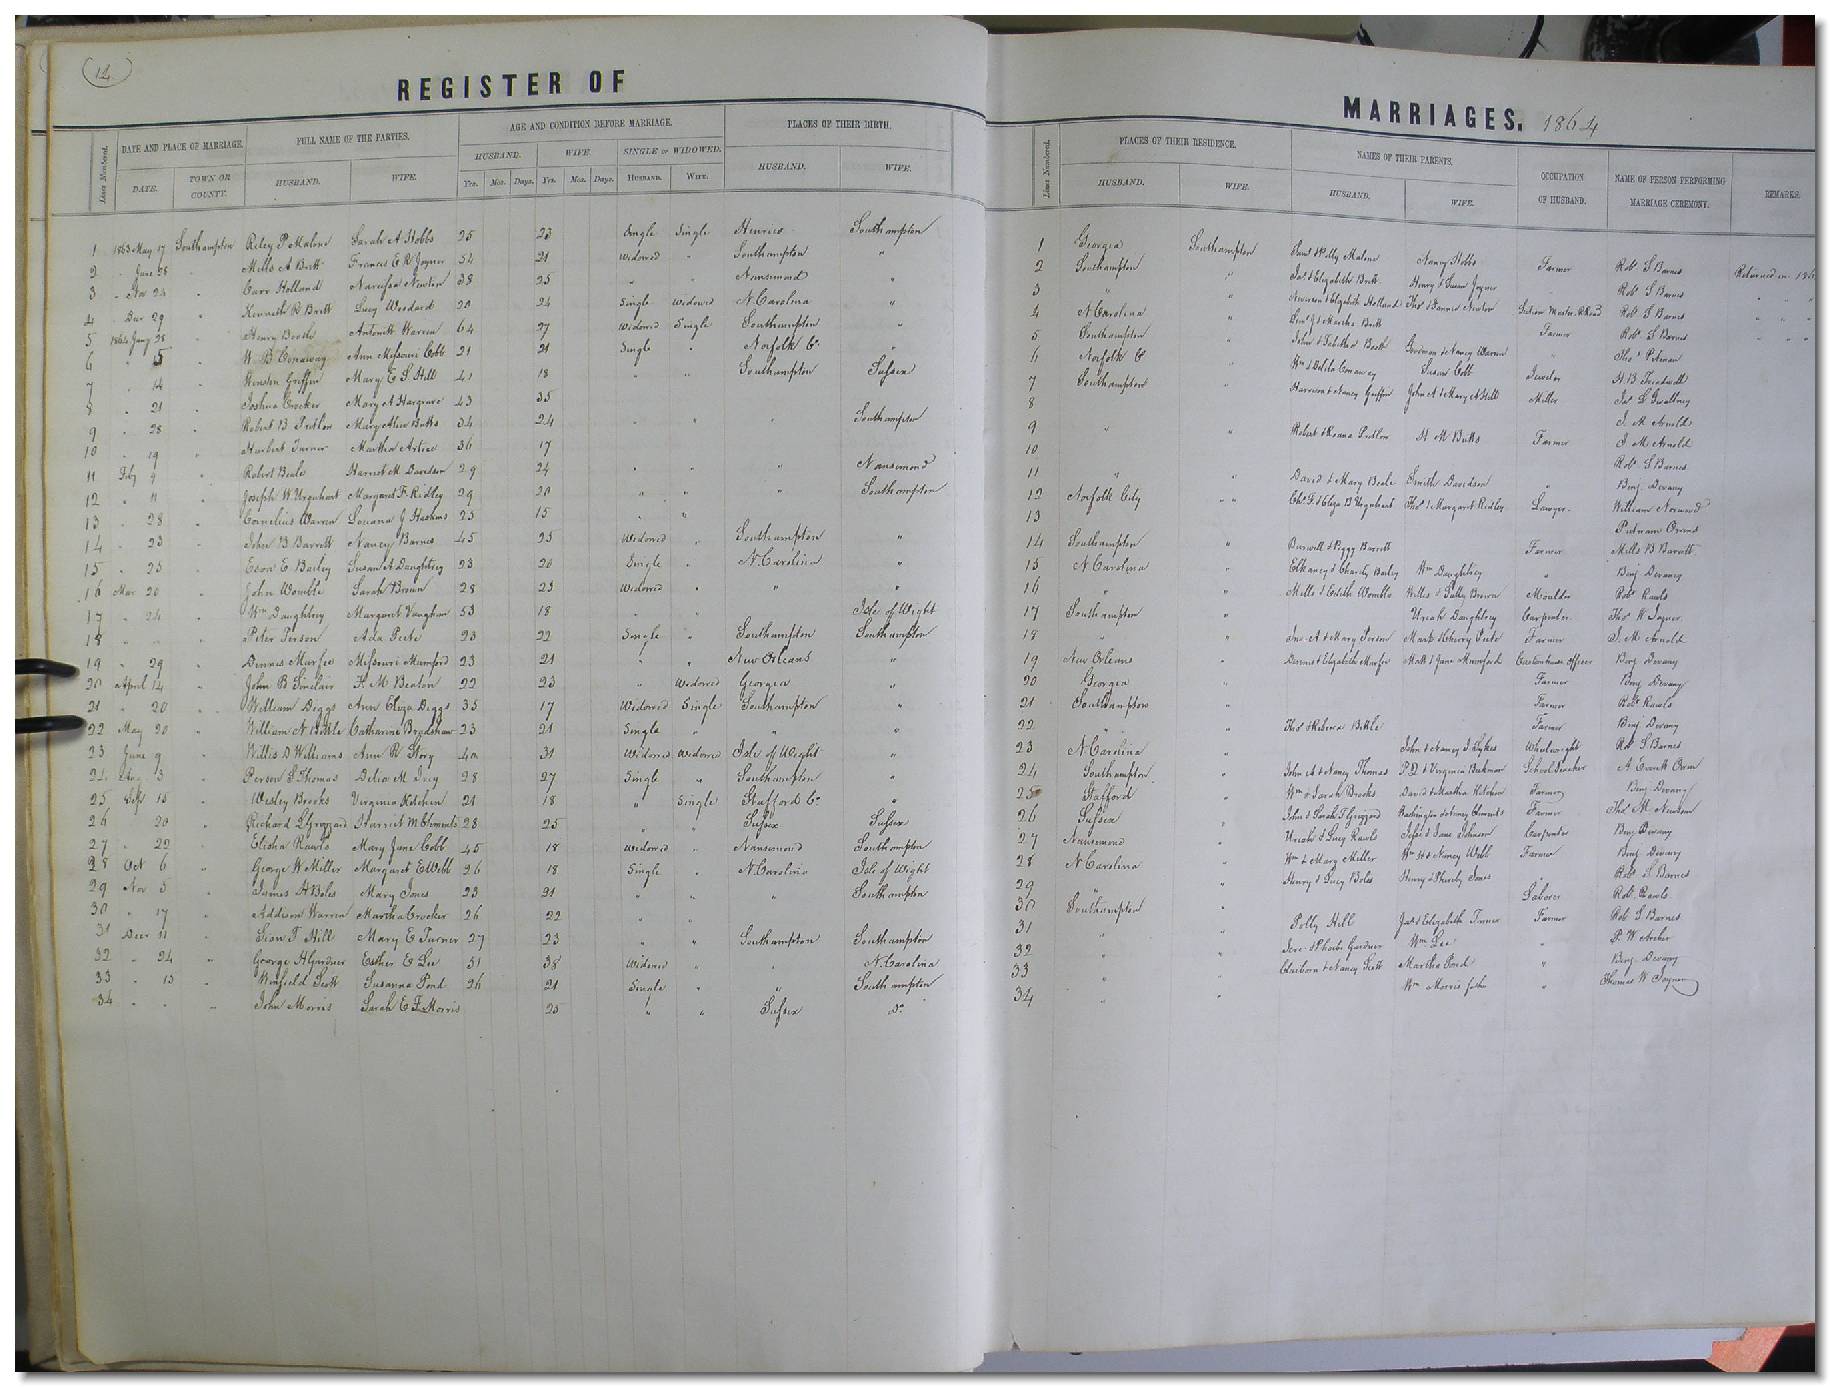 (14)
REGISTER OF
Lines Numbered. DATE AND PLACE OF MARRIAGE. FULL NAME OF THE PARTIES. AGE AND CONDITION BEFORE MARRIAGE. PLACES OF THEIR BIRTH.
HUSBAND. WIFE. SINGLE or WIDOWED.
DATE. TOWN OR COUNTY. HUSBAND. WIFE. Yrs. Mos. Days. Yrs. Mos. Days. HUSBAND. WIFE. HUSBAND. WIFE.
1 1863 May 17 Southampton Riley P Malone Sarah A Hobbs 25 23 Single Single Henrico Southampton
2 " June 28 " Mills A Britt Francis E R Joyner 54 21 Widowed " Southampton "
3 " Nov 24 " Carr Holland Narcissa Newton 38 25 " " Nansemond "
4 " Dec 29 " Kenneth R Britt Lucy Woodard 20 24 Single Widowed N. Carolina "
5 1864 Jany 28 " Henry Booth Antonett Warren 64 27 Widowed Single Southampton "
6 " 5 " W. B Conaway Ann Missouri Cobb 21 21 Single " Norfolk Co "
7 " 14 " Griffin Mary E S Hill 41 18 " " Southampton Sussex
8 " 21 " Joshua Crocker Mary A Hargrave 43 35
9 " 28 " Robert B Mary Butts 34 24 " " " Southampton
10 " 19 " Turner Martha Artice 36 17
11 Feby 9 " Robert Beale Harriet M Davidson 29 24 " " " Nansemond
12 " 11 " Joseph W Urquhart Margaret F Ridley 29 20 " " " Southampton
13 " 28 " Cornelius Warren Louana J Haskins 23 15 " "
14 " 23 " John B Barrett Nancy Barnes 45 25 Widowed " Southampton "
15 " 25 " Eson E Bailey Susan A Daughtrey 23 20 Single " N. Carolina "
16 Mar 20 " John Womble Sarah Brown 28 23 Widowed " " "
17 " 24 " Wm Daughtrey Margaret Vaughan 53 18 Isle of Wight
18 " " " Peter Person Ada Pete 23 22 Single " Southampton Southampton
19 " 29 " Dennis Murfee Missouri Mumford 23 21 " " New Orleans "
20 April 14 " John B Sinclair F. M Beaton 22 23 " Widowed Georgia "
21 " 20 " William Diggs Ann Eliza Diggs 35 17 Widowed Single Southampton "
22 May 20 " William N Bittle Catharine Bradshaw 23 21 Single " " "
23 June 9 " Willis D Williams Ann R Story 40 31 Widowed Widowed Isle of Wight "
24 Aug 3 " Person S Thomas Delia M Ivey 28 27 Single " Southampton "
25 Sept 15 " Wesley Brooks Virginia Kitchen 21 18 " Single Stafford Co "
26 20 " Richard L Grizzard Harriet M Clements 28 25 " " Sussex Sussex
27 " 22 " Elisha Rawls Mary Jane Cobb 45 18 Widowed " Nansemond Southampton
28 Oct 6 " George W Miller Margaret E Webb 26 18 Single " N. Carolina Isle of Wight
29 Nov 5 " James H Boles Mary Jones 23 21 " " " Southampton
30 " 17 " Addison Warren Martha Crocker 26 22 " "
31 Decr 11 " T Hill Mary E Turner 27 23 " " Southampton Southampton
32 " 24 " George H Gardner Esther E Lee 51 38 Widowed " " N. Carolina
33 " 13 " Winfield Scott Susanna Pond 26 21 Single " " Southampton
34 " " " John Morris Sarah E F Morris 25 " " Sussex Do
MARRIAGES. 1864
Lines Numbered. PLACES OF THEIR RESIDENCE. NAMES OF THEIR PARENTS. OCCUPATION OF HUSBAND. NAME OF PERSON PERFORMING MARRIAGE CEREMONY. REMARKS.
HUSBAND. WIFE. HUSBAND. WIFE.
1 Georgia Southampton & Polly Malone Nancy Hobbs Farmer Robt S Barnes Returned in 186
2 Southampton " Jas & Elizabeth Britt Henry & Susan Joyner Robt S Barnes " "
3 " " & Elizabeth Holland Thos & Fannie Newton Section Master R Road Robt S Barnes " "
4 N Carolina " & Martha Britt Farmer Robt S Barnes " "
5 Southampton " John & Tabitha Booth & Nancy Warren " Thos Pitman
6 Norfolk Co " Wm & Delila Conaway Susan Cobb Jeweler
7 Southampton " Harrison & Nancy Griffin John A & Mary A Hill Miller Jas L Gwaltney
8 J. M Arnold
9 " " Robert & H M Butts Farmer J M Arnold
10 Robt S Barnes
11 " David & Mary Beale Smith Davidson " Benj Devany
12 Norfolk City " " Chs F & Eliza B Urquhart Thos & Margaret Ridley Lawyer William Norwood
13 Putnam Owens
14 Southampton " Burwell & Peggy Barrett Farmer Mills B Barrett
15 N. Carolina " & Charity Bailey Wm Daughtrey " Benj Devany
16 " " Mills & Edith Womble Willis & Sally Brown Moulder Robt Rawls
17 Southampton " Uriah Daughtrey Carpenter Thos W Joyner
18 " " Jno A & Mary Person Mark & Cherry Pete Farmer J. M Arnold
19 New Orleans " Dennis & Elizabeth Murfee Matt & Jane Mumford Customhouse Officer Benj Devany
20 Georgia " Farmer Benj Devany
21 Southampton " Farmer Robt Rawls
22 " " Thos & Rebecca Bittle Farmer Benj Devany
23 N. Carolina " John & Nancy J Sykes Wheelwright Robt S Barnes
24 Southampton " John A & Nancy Thomas P. D & Virginia School Teacher A Everett
25 Stafford " Wm & Sarah Brooks David & Martha Kitchen Farmer Benj Devany
26 Sussex " John & Sarah J Grizzard Washington & Clements Farmer Thos M Newsom
27 Nansemond " Uriah & Lucy Rawls & Jane Johnson Carpenter Benj Devany
28 N. Carolina " Wm & Mary Miller Wm H & Nancy Webb Farmer Benj Devany
29 " " Henry & Lucy Boles Henry & Jones " Robt S Barnes
30 Southampton " Laborer Robt Rawls
31 " " Polly Hill Jas & Elizabeth Turner Farmer Robt S Barnes
32 " " & Phoebe Gardner Wm Lee " P. W Archer
33 " " Claiborn & Nancy Scott Martha Pond " Benj Devany
34 " " Wm Morris " Thomas W Joyner